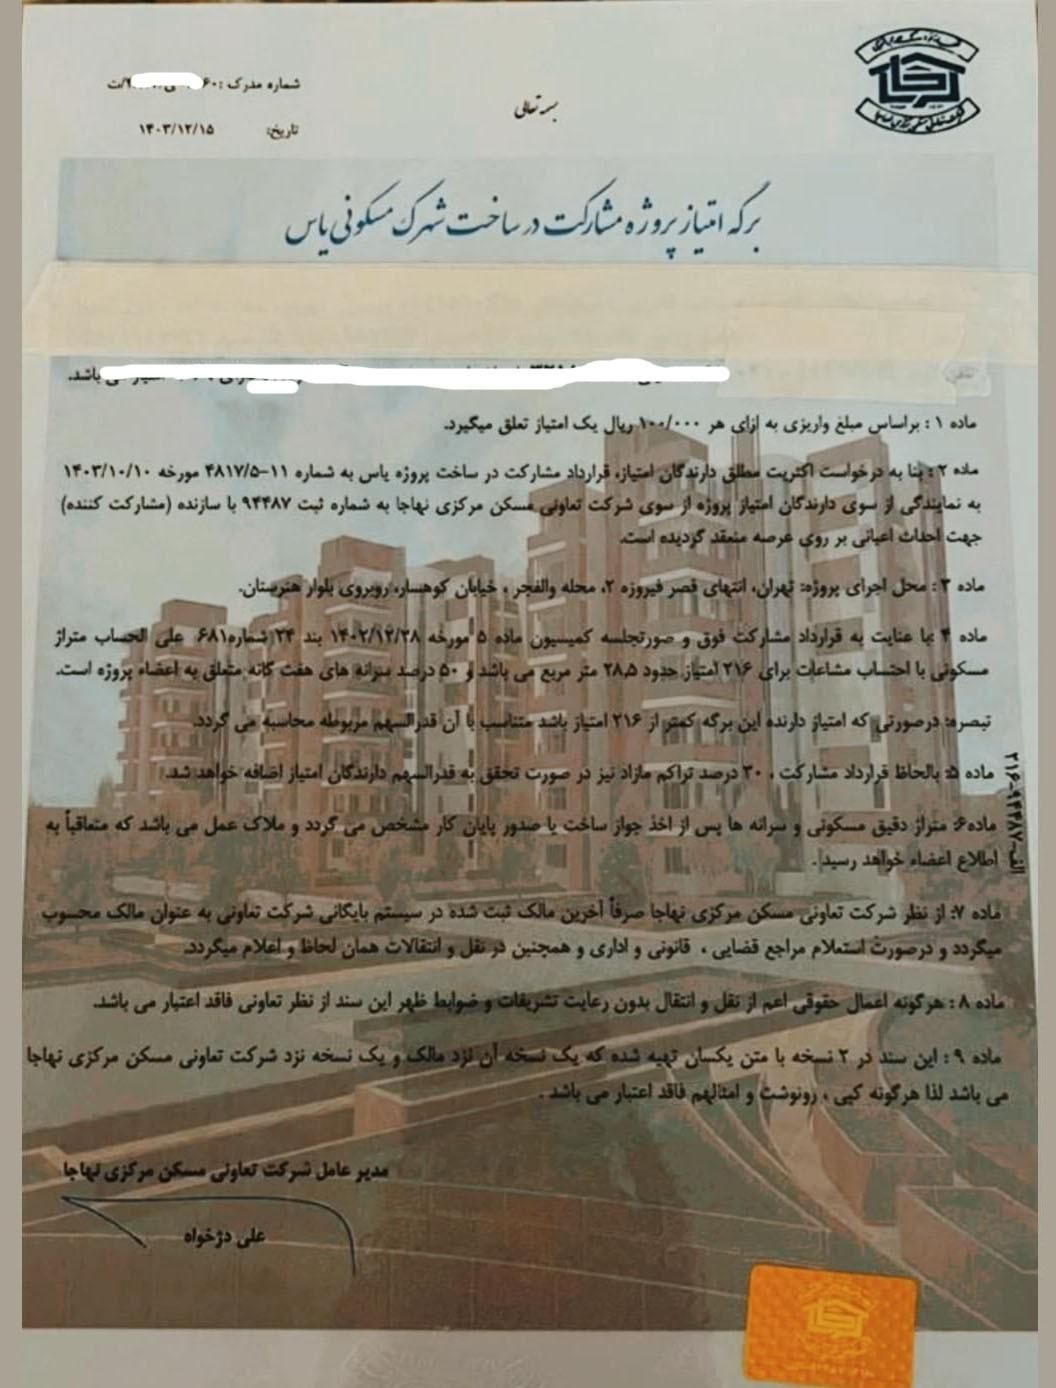 شماره مدرک :
بسمه تعالی
تاریخ: ۱۴۰۳/۱۲/۱۵
برگه امتیاز پروژه مشارکت در ساخت شهرک مسکونی یاس
باشد.
ماده ۱ : براساس مبلغ واریزی به ازای هر ۱۰۰/۰۰۰ ریال یک امتیاز تعلق میگیرد.
ماده ۲ : بنا به درخواست اکثریت مطلق دارندگان امتیاز، قرارداد مشارکت در ساخت پروژه یاس به شماره ۱۱-۴۸۱۷/۵ مورخه ۱۴۰۳/۱۰/۱۰
به نمایندگی از سوی دارندگان امتیاز پروژه از سوی شرکت تعاونی مسکن مرکزی نهاجا به شماره ثبت ۹۴۴۸۷ با سازنده (مشارکت کننده)
جهت احداث اعیانی بر روی عرصه منعقد گردیده است.
ماده ۳ : محل اجرای پروژه: تهران، انتهای قصر فیروزه ۲، محله والفجر ، خیابان کوهسار، روبروی بلوار هنرستان.
ماده ۴ :با عنایت به قرارداد مشارکت فوق و صورتجلسه کمیسیون ماده ۵ مورخه ۱۴۰۲/۱۲/۲۸ بند ۲۴ شماره۶۸۱ علی الحساب متراژ
مسکونی با احتساب مشاعات برای ۲۱۶ امتیاز حدود ۲۸.۵ متر مربع می باشد و ۵۰ درصد سرانه های هفت گانه متعلق به اعضاء پروژه است.
تبصره: درصورتی که امتیاز دارنده این برگه کمتر از ۲۱۶ امتیاز باشد متناسب با آن قدرالسهم مربوطه محاسبه می گردد.
ماده ۵: بالحاظ قرارداد مشارکت ، ۳۰ درصد تراکم مازاد نیز در صورت تحقق به قدرالسهم دارندگان امتیاز اضافه خواهد شد.
ماده۶: متراژ دقیق مسکونی و سرانه ها پس از اخذ جواز ساخت یا صدور پایان کار مشخص می گردد و ملاک عمل می باشد که متعاقباً به
اطلاع اعضاء خواهد رسید.
الف-۹۴۴۸۷-۲۱۶
ماده ۷: از نظر شرکت تعاونی مسکن مرکزی نهاجا صرفاً آخرین مالک ثبت شده در سیستم بایگانی شرکت تعاونی به عنوان مالک محسوب
میگردد و درصورت استعلام مراجع قضایی ، قانونی و اداری و همچنین در نقل و انتقالات همان لحاظ و اعلام میگردد.
ماده ۸ : هرگونه اعمال حقوقی اعم از نقل و انتقال بدون رعایت تشریفات و ضوابط ظهر این سند از نظر تعاونی فاقد اعتبار می باشد.
ماده ۹ : این سند در ۲ نسخه با متن یکسان تهیه شده که یک نسخه آن نزد مالک و یک نسخه نزد شرکت تعاونی مسکن مرکزی نهاجا
می باشد لذا هرگونه کپی ، رونوشت و امثالهم فاقد اعتبار می باشد .
مدیر عامل شرکت تعاونی مسکن مرکزی نهاجا
علی دژخواه